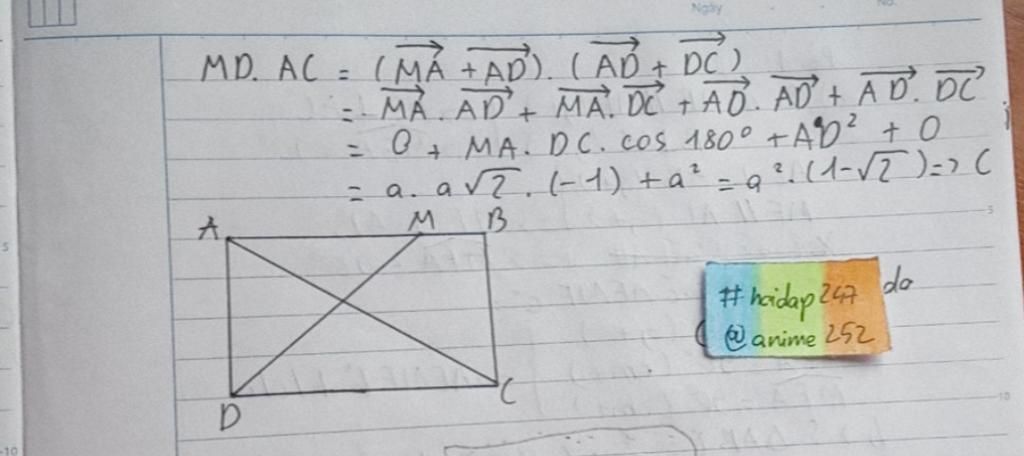 Ngày
No.
MD. AC = (MA + AD). (AD + DC)
= MA. AD + MA. DC + AD. AD + AD. DC
= 0 + MA. DC. cos 180° + AD² + 0
= a. a√2. (-1) + a² = a². (1-√2) => C
A M B
5
5
# hoidap247 do
@ anime 252
D C
10
10